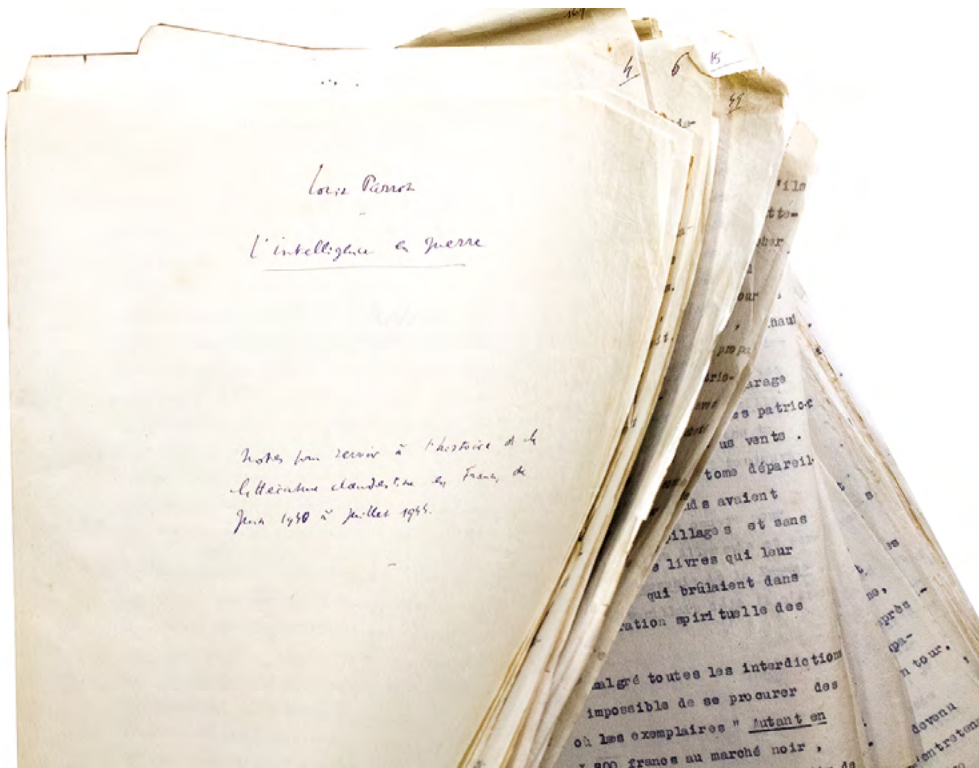 167
4
6
15
45
Louis Parrot
L'intelligence en guerre
Notes pour servir à l'histoire de la
littérature clandestine en France de
Juin 1940 à Juillet 1944.
'ils
tte-
cher
our
haut,
propa
tric-
arage
es patrio
us vents .
tome dépareil
ds avaient
pillages et sans
e livres qui leur
qui brûlaient dans
ration spirituelle des
malgré toutes les interdictions
impossible de se procurer des
où les exemplaires " Autant en
800 francs au marché noir ,
de
s
t,
es
ne,
après
pa-
n tour.
devenu
entreten